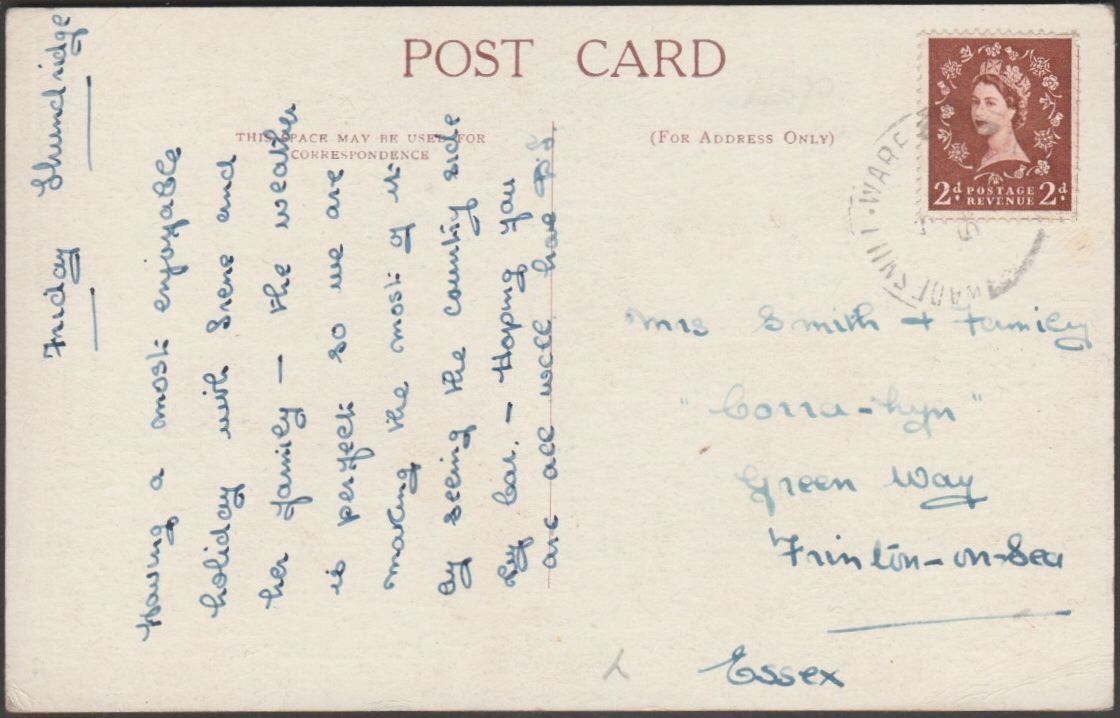 POST CARD
THIS SPACE MAY BE USED FOR
CORRESPONDENCE
(FOR ADDRESS ONLY)
2d POSTAGE REVENUE 2d
WADESMILL · WARE
Friday
Having a most enjoyable
holiday with Irene and
her family - the weather
is perfect so we are
making the most of it
by seeing the country side
by Car. - Hoping you
are all well, love
Mrs Smith + Family
"Corra-Lyn"
Green Way
Frinton-on-Sea
Essex